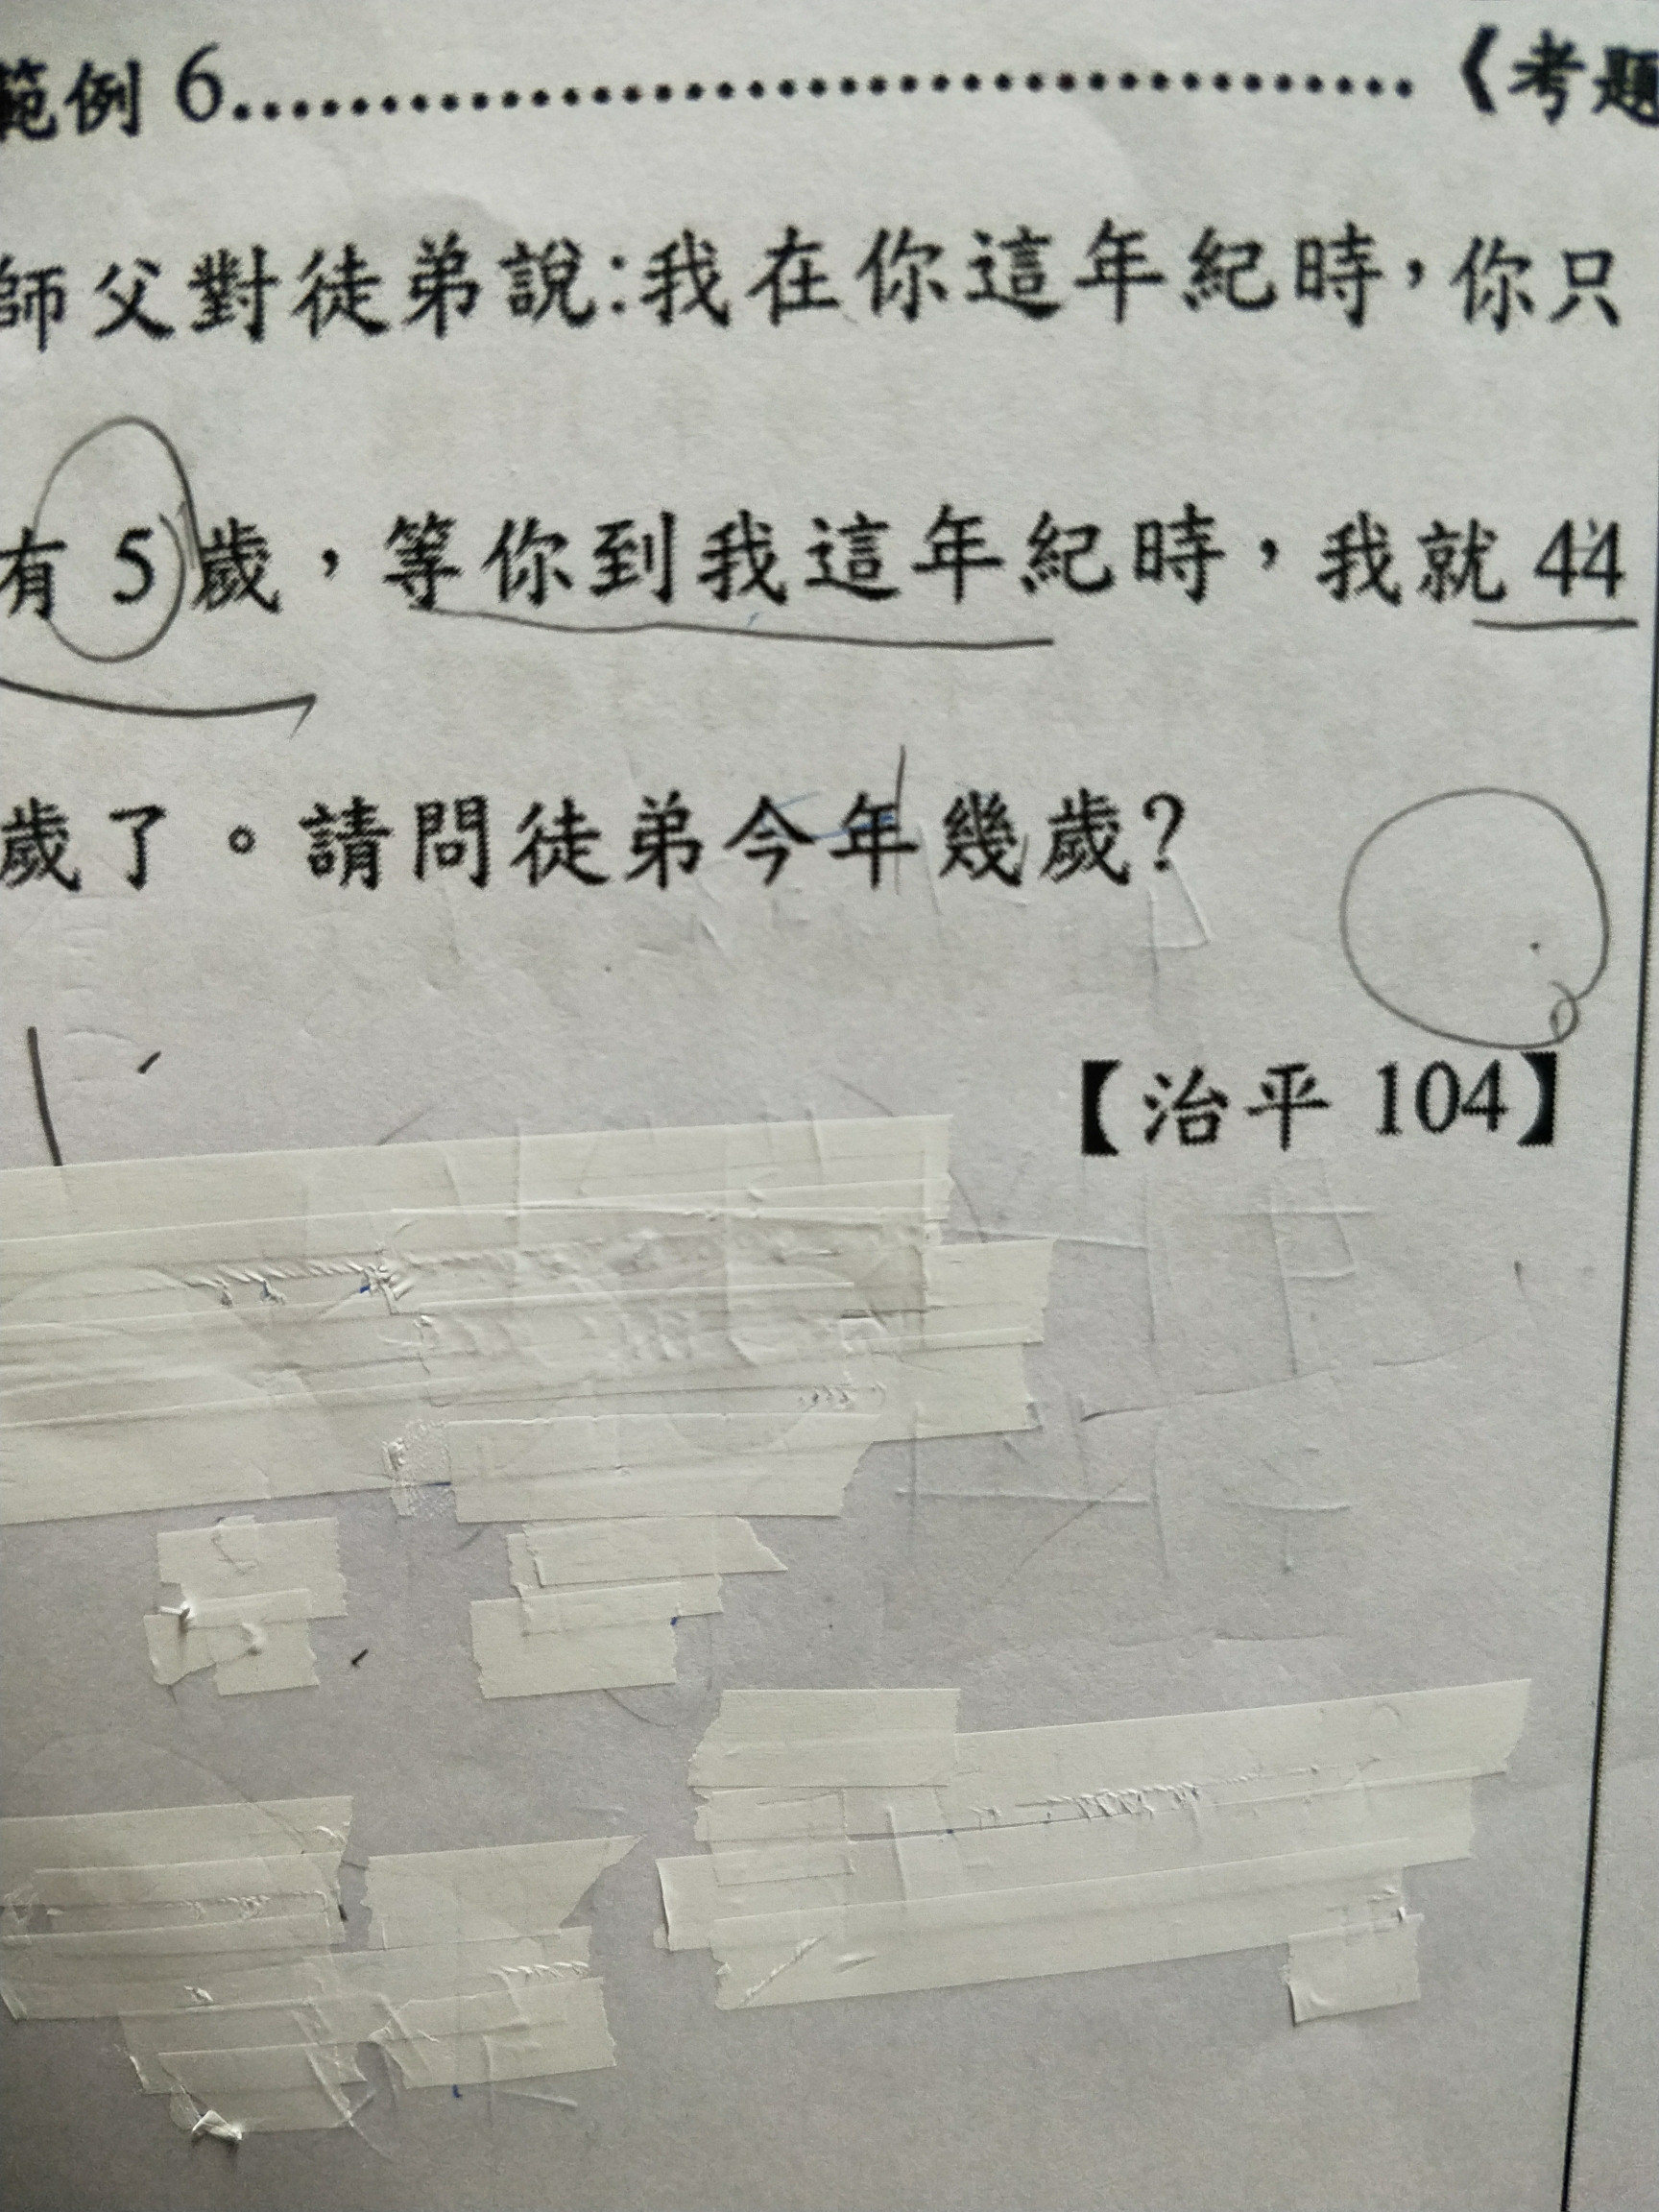 範例 6........................................《考題
師父對徒弟說:我在你這年紀時，你只
有 5 歲，等你到我這年紀時，我就 44
歲了。請問徒弟今年幾歲?
【治平 104】